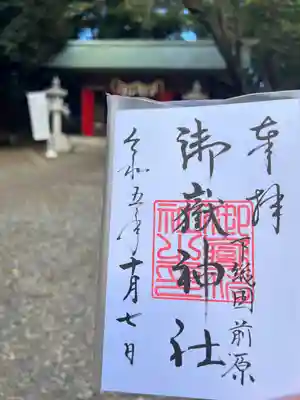 奉拝
下総国前原
御嶽神社
令和五年十月七日